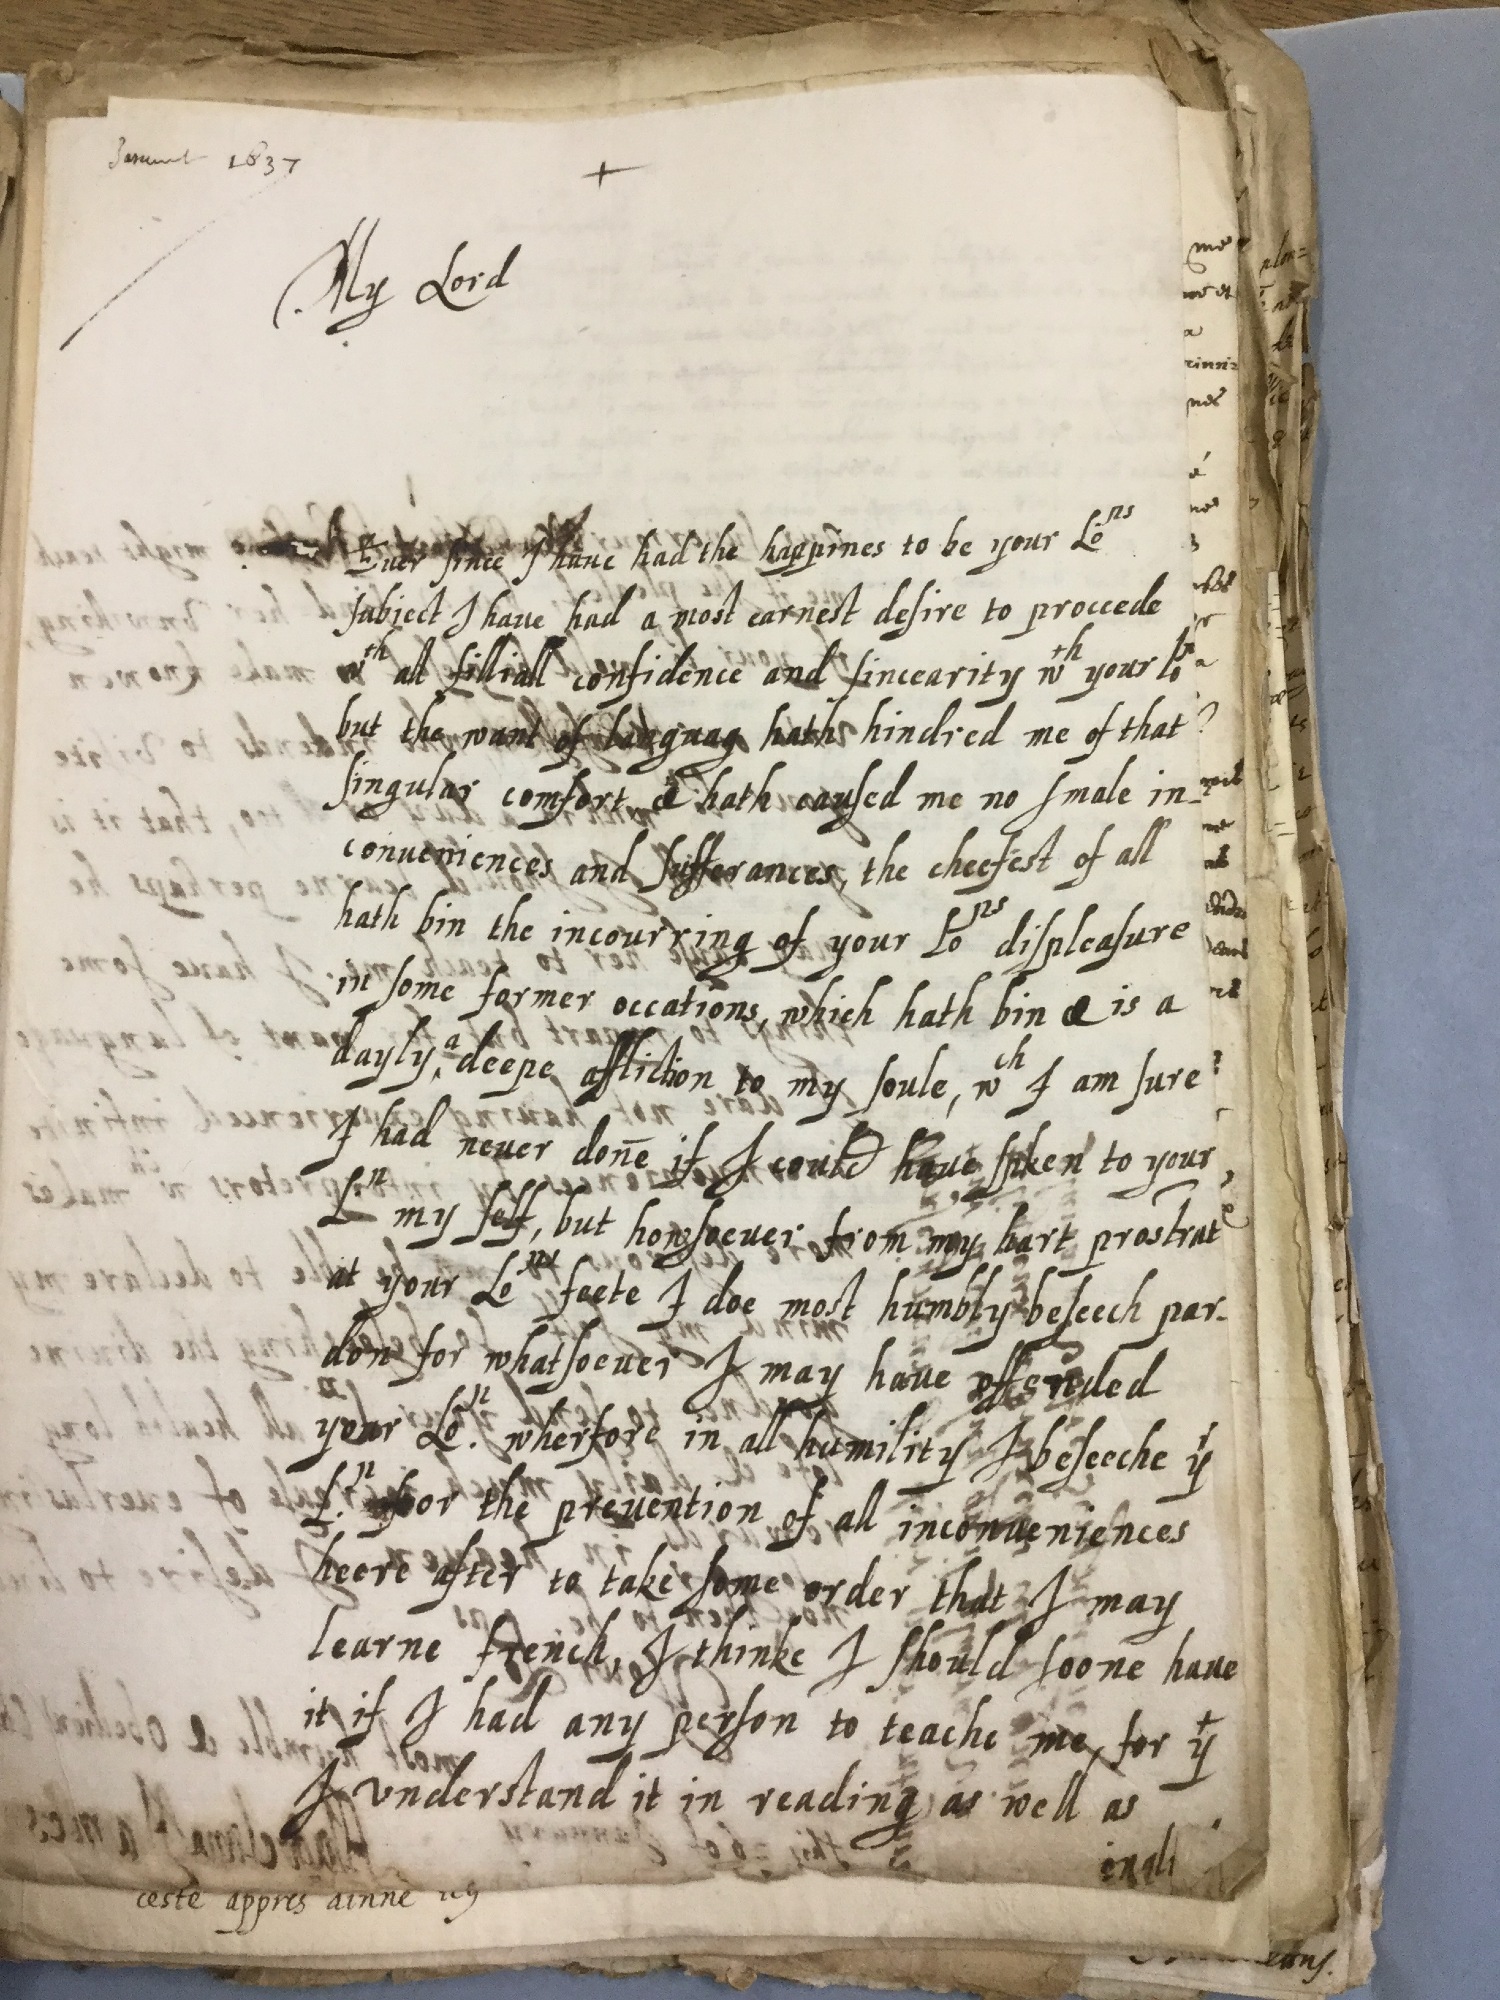 1837
+
My Lord
Euer since I haue had the happines to be your Lo^ps
subiect I haue had a most earnest desire to proccede
w^th all filliall confidence and sincearity w^th your Lo^p
but the want of languag hath hindred me of that
singular comfort & hath caused me no smale in-
conueniences and sufferances, the cheefest of all
hath bin the incourring of your Lo^ps displeasure
in some former occations, which hath bin & is a
dayly, a deepe affliction to my soule, w^ch I am sure
I had neuer donē if I could haue spken to your
L^p my self, but howsoeuer from my hart prostrat
at your Lo^ps feete I doe most humbly beseech par-
don for whatsoeuer I may haue offended
your Lo^p. wherfore in all humility I beseeche y^r
L^p. for the preuention of all inconueniences
heere after to take some order that I may
learne french, I thinke I should soone haue
it if I had any person to teache me, for y^t
I vnderstand it in reading as well as
engli
ceste appres ainne